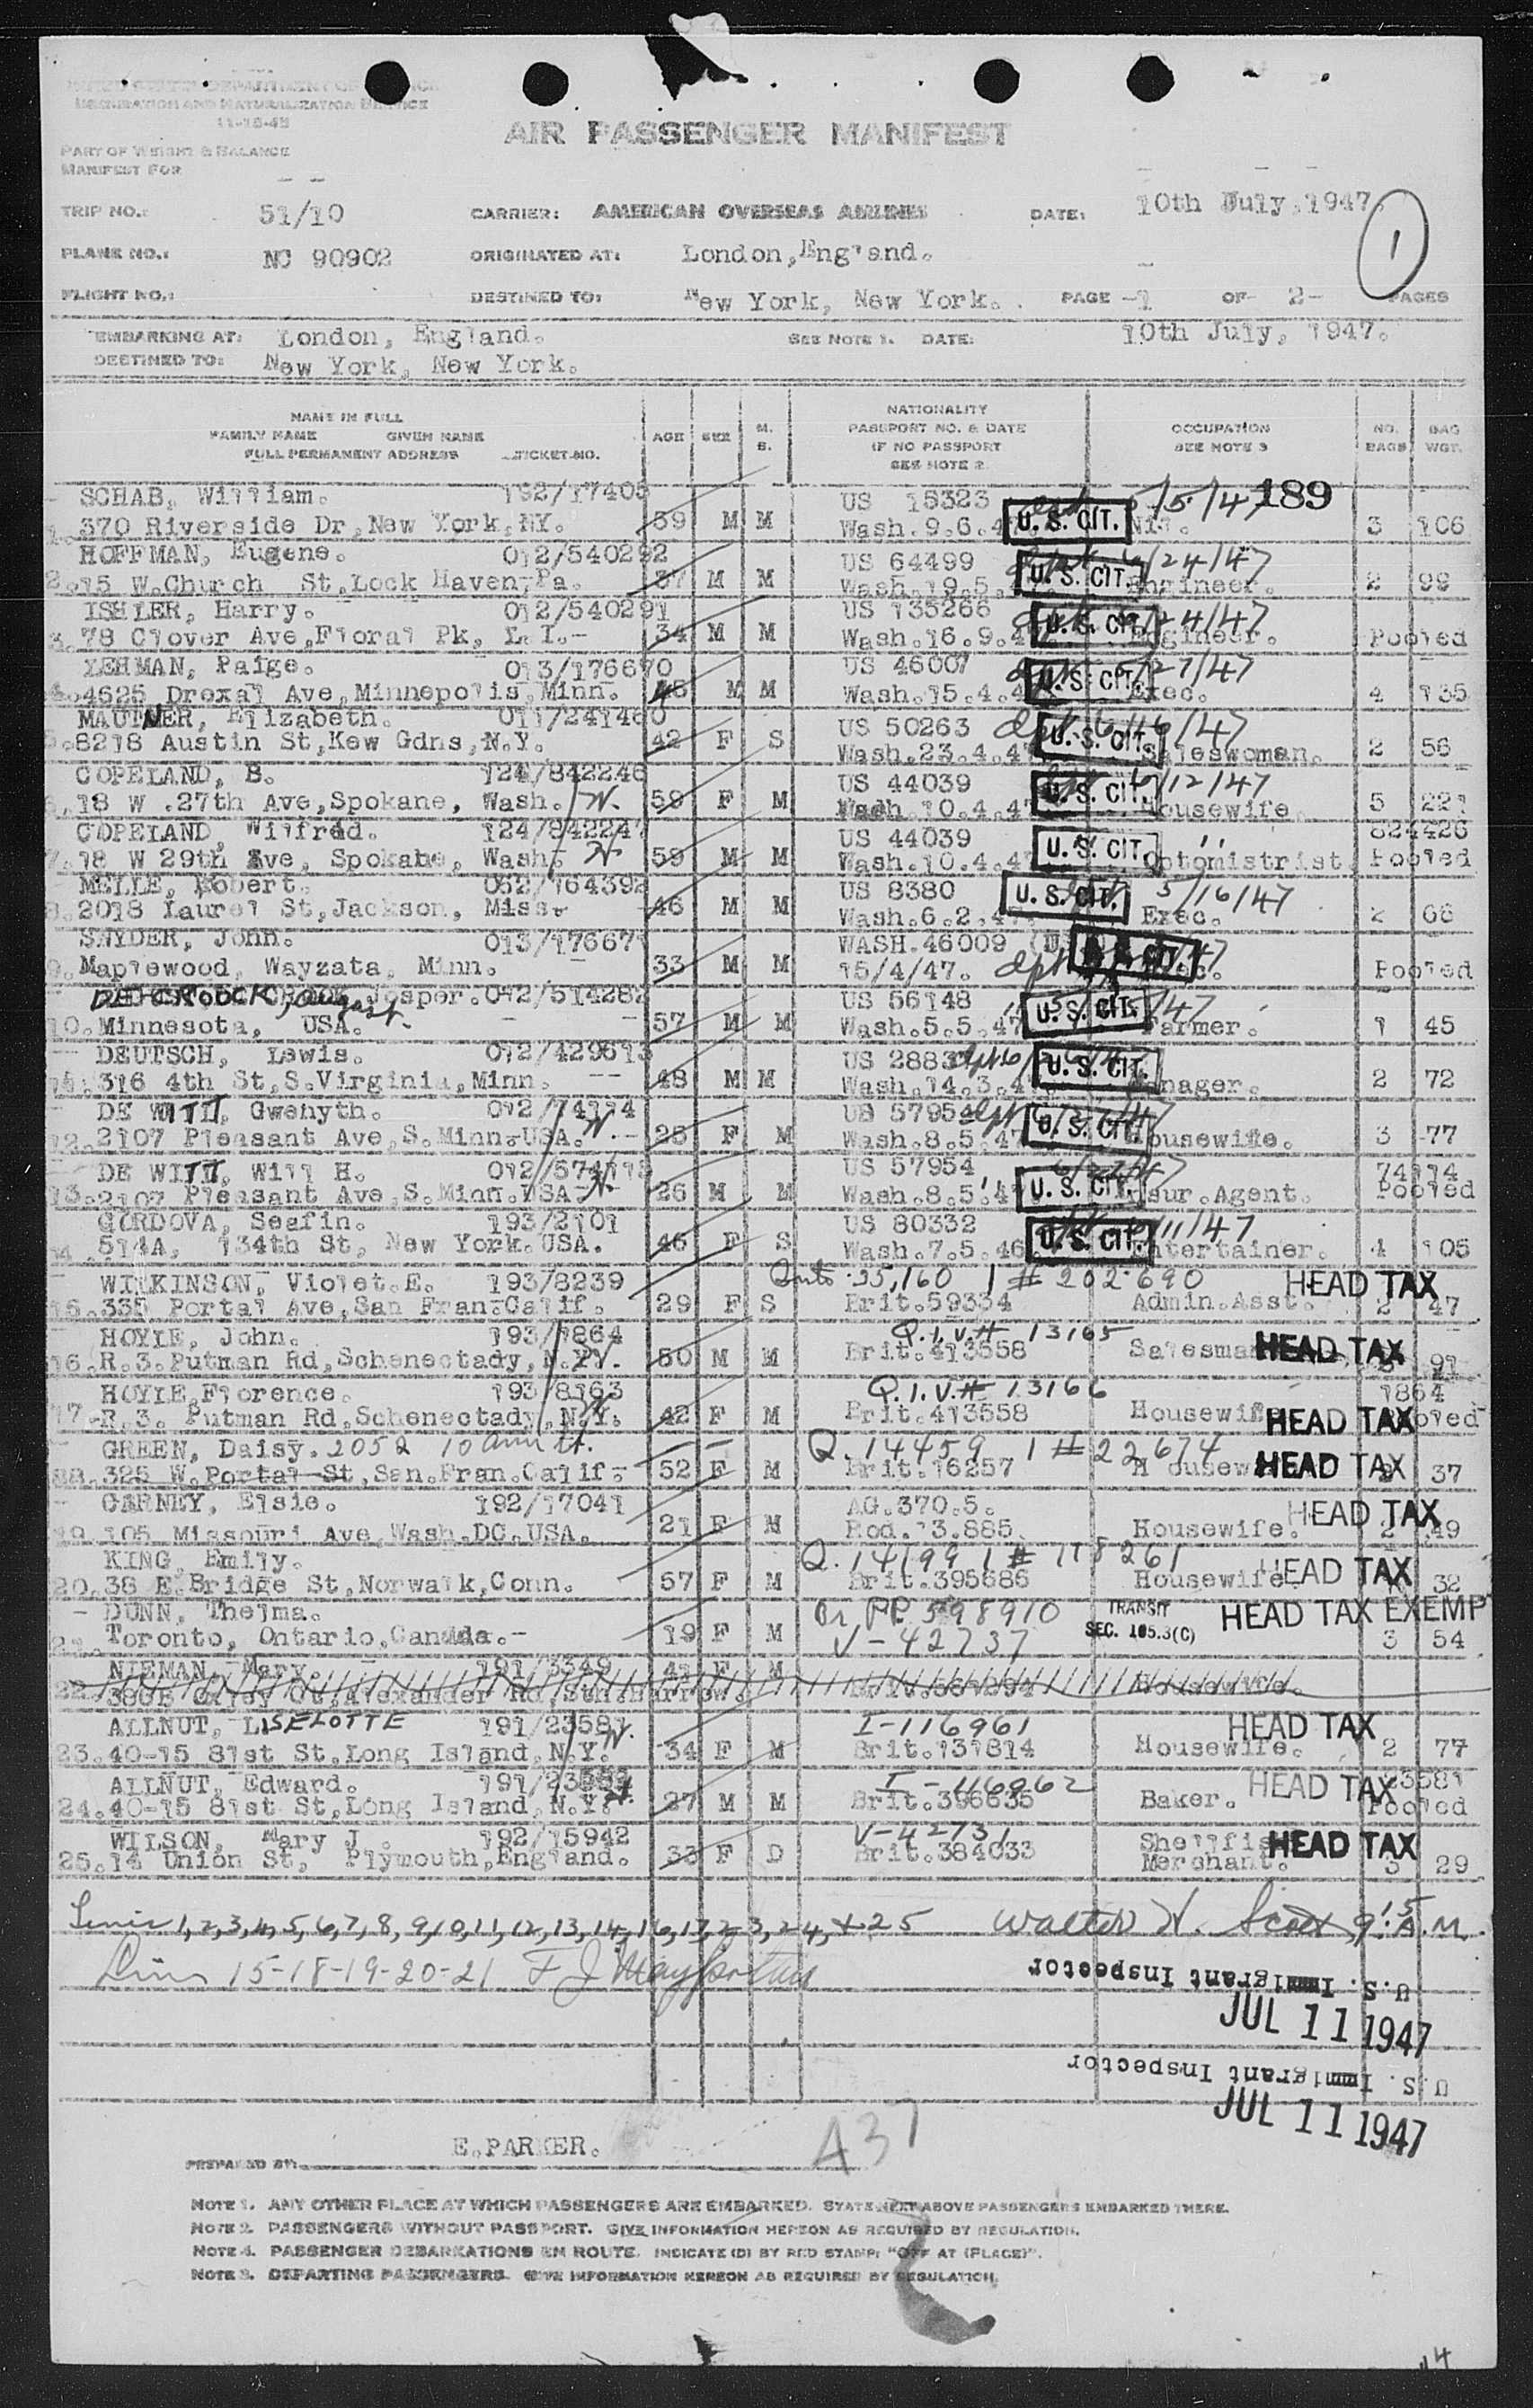 UNITED STATES DEPARTMENT OF JUSTICE
IMMIGRATION AND NATURALIZATION SERVICE
11-15-45
AIR PASSENGER MANIFEST
PART OF WEIGHT & BALANCE
MANIFEST FOR
TRIP NO.: 51/10 CARRIER: AMERICAN OVERSEAS AIRLINES DATE: 10th July,1947.
1
PLANE NO.: NC 90902 ORIGINATED AT: London,England.
FLIGHT NO.: DESTINED TO: New York, New York. PAGE -1 OF 2- PAGES
EMBARKING AT: London, England. SEE NOTE 1. DATE: 10th July, 1947.
DESTINED TO: New York, New York.
NAME IN FULL
FAMILY NAME GIVEN NAME
FULL PERMANENT ADDRESS TICKET NO.
AGE SEX M. S.
NATIONALITY
PASSPORT NO. & DATE
IF NO PASSPORT
SEE NOTE 2
OCCUPATION
SEE NOTE 3
NO. BAGS BAG WGT.
SCHAB, William. 192/17405 US 15323 5/5/47 189
1. 370 Riverside Dr,New York,NY. 59 M M Wash.9.6.4 U. S. CIT. Nil. 3 106
HOFFMAN, Eugene. 012/540292 US 64499 6/24/47
2. 15 W.Church St,Lock Haven,Pa. 37 M M Wash.19.5. U. S. CIT. Engineer. 2 99
ISHLER, Harry. 012/540291 US 135266 6/24/47
3. 78 Clover Ave,Floral Pk, L.I.- 34 M M Wash.16.9.4 U. S. CIT. Engineer. Pooled
LEHMAN, Paige. 013/176670 US 46007 5/27/47
4. 4625 Drexal Ave,Minnepolis,Minn. 45 M M Wash.15.4.4 U. S. CIT. Exec. 4 135
MAUTNER, Elizabeth. 011/241460 US 50263 dpt 6/16/47
5. 8218 Austin St,Kew Gdns,N.Y. 42 F S Wash.23.4.47 U. S. CIT. Saleswoman. 2 56
COPELAND, B. 124/842246 US 44039 6/12/47
6. 18 W .27th Ave,Spokane, Wash. N. 59 F M Wash.10.4.47 U. S. CIT. Housewife. 5 221
COPELAND, Wilfred. 124/842247 US 44039 '' 824426
7. 18 W 29th Ave, Spokane, Wash. N 59 M M Wash.10.4.47 U. S. CIT. Optomistrist. Pooled
MELLE, Robert. 052/164392 US 8380 5/16/47
8. 2018 Laurel St,Jackson, Miss. 46 M M Wash.6.2.47 U. S. CIT. Exec. 2 66
SNYDER, John. 013/176671 WASH.46009
9. Maplewood, Wayzata, Minn. 33 M M 15/4/47. dpt Pooled
Jesper. 012/514282 US 56148
10. Minnesota, USA. 57 M M Wash.5.5.47 U. S. CIT. Farmer. 1 45
DEUTSCH, Lewis. 012/429613 US 2883
11. 316 4th St,S.Virginia,Minn. 48 M M Wash.14.3.4 U. S. CIT. Manager. 2 72
DE WITT, Gwenyth. 012/74114 US 5795
12. 2107 Pleasant Ave,S.Minn.USA. N. 25 F M Wash.8.5.47 U. S. CIT. Housewife. 3 77
DE WITT, Will H. 012/574115 US 57954 74114
13. 2107 Pleasant Ave,S.Minn.USA. N. 26 M M Wash.8.5.47 U. S. CIT. Insur.Agent. Pooled
CORDOVA, Seafin. 193/2101 US 80332 6/11/47
14. 514A, 134th St, New York.USA. 46 F S Wash.7.5.46. U. S. CIT. Entertainer. 4 105
WILKINSON, Violet.E. 193/8239 Quota 25,160 1 # 202690 HEAD TAX
15. 335 Portal Ave,San Fran.Calif. 29 F S Brit.59334 Admin.Asst. 2 47
HOYLE, John. 193/1864 Q.I.V.# 13165
16. R.3.Putman Rd,Schenectady,N.Y. N. 50 M M Brit.413558 Salesman HEAD TAX 91
HOYLE,Florence. 193/8163 Q.I.V.# 13166 1864
17. R.3. Putman Rd,Schenectady,N.Y. 42 F M Brit.413558 Housewife HEAD TAX Pooled
GREEN, Daisy. 2052 10 Q.14459 1 # 22674
18. 325 W.Portal St,San.Fran.Calif. 52 F M Brit.16257 Housewife HEAD TAX 37
CARNEY, Elsie. 192/17041 AG.370.5. HEAD TAX
19. 105 Missouri Ave,Wash.DC.USA. 21 F M Rod.13.885. Housewife. 2 49
KING, Emily. Q.14199 1 # 118261
20. 38 E.Bridge St,Norwalk,Conn. 57 F M Brit.395686 Housewife. HEAD TAX 32
DUNN, Thelma. Br PP. 598910 TRANSIT HEAD TAX EXEMP
21. Toronto, Ontario,Canada.- 19 F M V-42737 SEC. 105.3(C) 3 54
NIEMAN, Mary. 191/3349 41 F M
22. Alexander Rd,Sth.Harrow. Housewife.
ALLNUT, LISELOTTE 191/23581 I-116961 HEAD TAX
23. 40-15 81st St,Long Island,N.Y. N. 34 F M Brit.131814 Housewife. 2 77
ALLNUT, Edward. 191/23582 I-116962 HEAD TAX 23581
24. 40-15 81st St,Long Island,N.Y. 27 M M Brit.396635 Baker. Pooled
WILSON, Mary J. 192/15942 V-42731 Shellfish HEAD TAX
25. 14 Union St, Plymouth,England. 33 F D Brit.384033 Merchant. 3 29
Lines 1,2,3,4,5,6,7,8,9,10,11,12,13,14,16,17,23,24,+25 Walter N. Scott 9:15 A.M.
Lines 15-18-19-20-21
U.S. Immigrant Inspector
JUL 11 1947
U.S. Immigrant Inspector
JUL 11 1947
A37
PREPARED BY: E.PARKER.
NOTE 1. ANY OTHER PLACE AT WHICH PASSENGERS ARE EMBARKED. STATE NEXT ABOVE PASSENGERS EMBARKED THERE.
NOTE 2. PASSENGERS WITHOUT PASSPORT. GIVE INFORMATION HEREON AS REQUIRED BY REGULATION.
NOTE 4. PASSENGER DEBARKATIONS EN ROUTE. INDICATE (D) BY RED STAMP: "OFF AT (PLACE)".
NOTE 3. DEPARTING PASSENGERS. GIVE INFORMATION HEREON AS REQUIRED BY REGULATION.
14